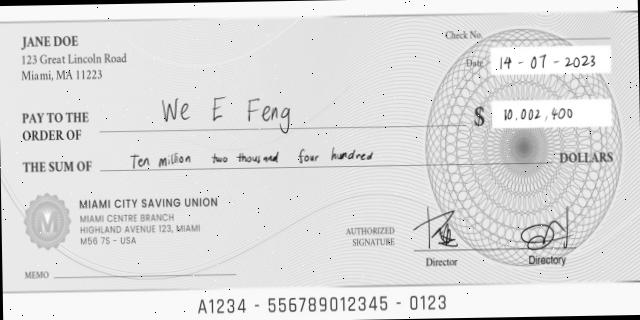 JANE DOE
123 Great Lincoln Road
Miami, MA 11223
Check No.
Date 14 - 07 - 2023
PAY TO THE
ORDER OF We E Feng
$ 10.002,400
THE SUM OF Ten million two thousand four hundred DOLLARS
MIAMI CITY SAVING UNION
MIAMI CENTRE BRANCH
HIGHLAND AVENUE 123, MIAMI
M56 7S - USA
AUTHORIZED
SIGNATURE
Director Directory
MEMO
A1234 - 556789012345 - 0123